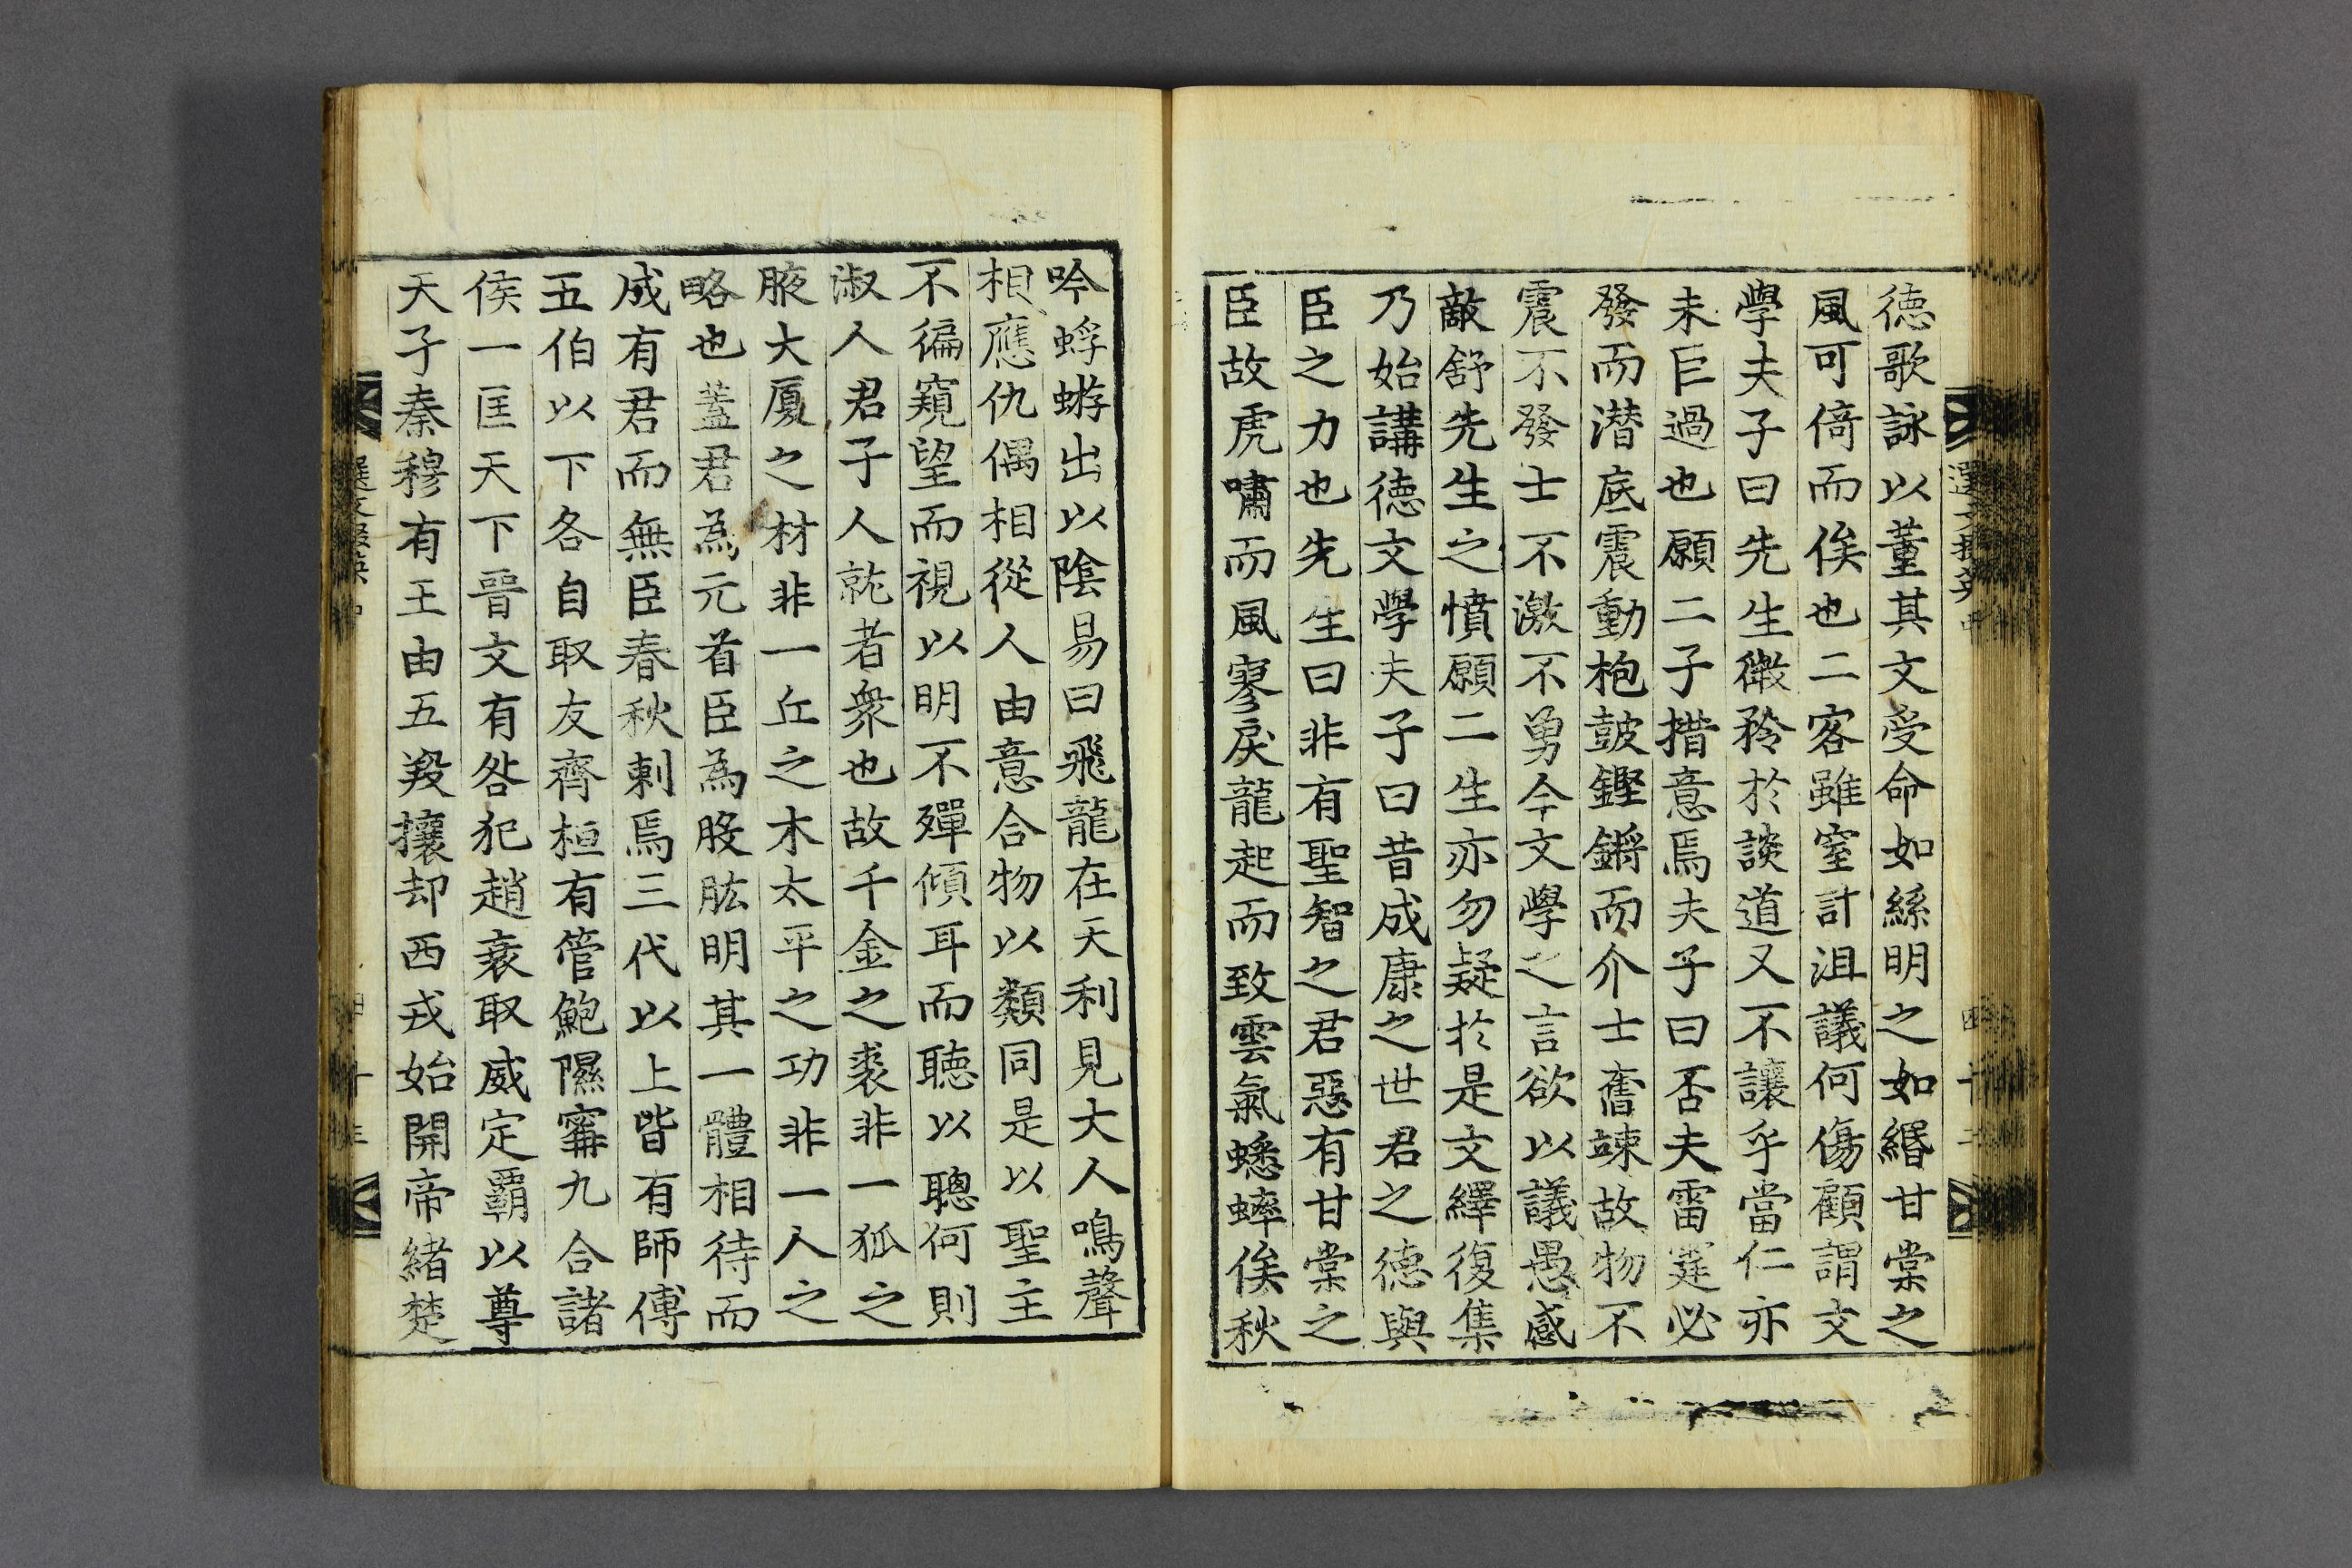 德歌詠以董其文受命如絲明之如緡甘棠之
風可倚而俟也二客雖窒計沮議何傷顧謂文
學夫子曰先生微矜於談道又不讓乎當仁亦
未巨過也願二子措意焉夫子曰否夫雷霆必
發而潜底震動枹鼓鏗鏘而介士奮竦故物不
震不發士不激不勇今文學之言欲以議愚感
敵舒先生之憤願二生亦勿疑於是文繹復集
乃始講德文學夫子曰昔成康之世君之德與
臣之力也先生曰非有聖智之君惡有甘棠之
臣故虎嘯而風寥戾龍起而致雲氣蟋蟀俟秋
吟蜉蝣出以陰易曰飛龍在天利見大人鳴聲
相應仇偶相從人由意合物以類同是以聖主
不徧窺望而視以明不殫傾耳而聽以聰何則
淑人君子人就者衆也故千金之裘非一狐之
腋大厦之材非一丘之木太平之功非一人之
略也蓋君為元首臣為股肱明其一體相待而
成有君而無臣春秋刺焉三代以上皆有師傅
五伯以下各自取友齊桓有管鮑隰甯九合諸
侯一匡天下晉文有咎犯趙衰取威定覇以尊
天子秦穆有王由五羖攘却西戎始開帝緒楚